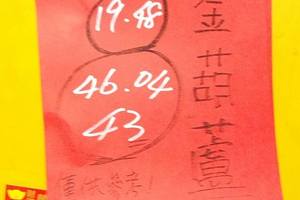 金葫蘆
19.48
46.04
43
僅供參考!